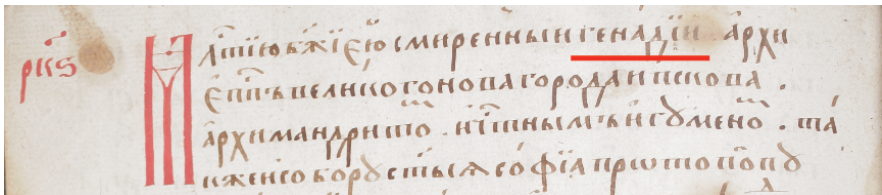 рк҃ѕ Мл҃стїю бж҃їею смиренныи генадїи архи
еп҃пъ великого новагорода и пскова .
архимандрито . и ч҃тнымъ игꙋмено . та
киже и соборꙋ ст҃ыѧ софїа протопопꙋ